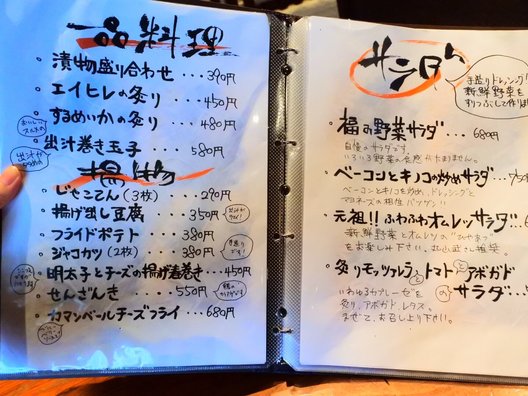 一品料理
・漬物盛り合わせ ・・・390円
・エイヒレの炙り ・・・450円
・するめいかの炙り ・・・480円
・出汁巻き玉子 ・・・580円
揚げ物
・じゃこてん(3枚) ・・・290円
・揚げ出し豆腐 ・・・350円
・フライドポテト ・・・380円
・ジャコカツ(2枚) ・・・380円
・明太子とチーズの揚げ春巻き ・・・450円
・せんざんき ・・・550円
・カマンベールチーズフライ ・・・680円
サラダ
手造りドレッシング!
新鮮野菜を
・福の野菜サラダ ・・・680円
自慢のサラダです
いろいろ野菜の食感がたまりません。
・ベーコンとキノコの炒めサラダ ・・・
ベーコンとキノコを炒め、ドレッシングと
マヨネーズの相性バツグン!!
・元祖!!ふわふわオムレツサラダ
新鮮野菜とオムレツの
をお楽しみ下さい。
・炙りモッツァレラとトマトとアボカド
のサラダ ・・・
いわゆるカプレーゼを
炙り、アボガド、レタス、
まぜて、お召し上り下さい。